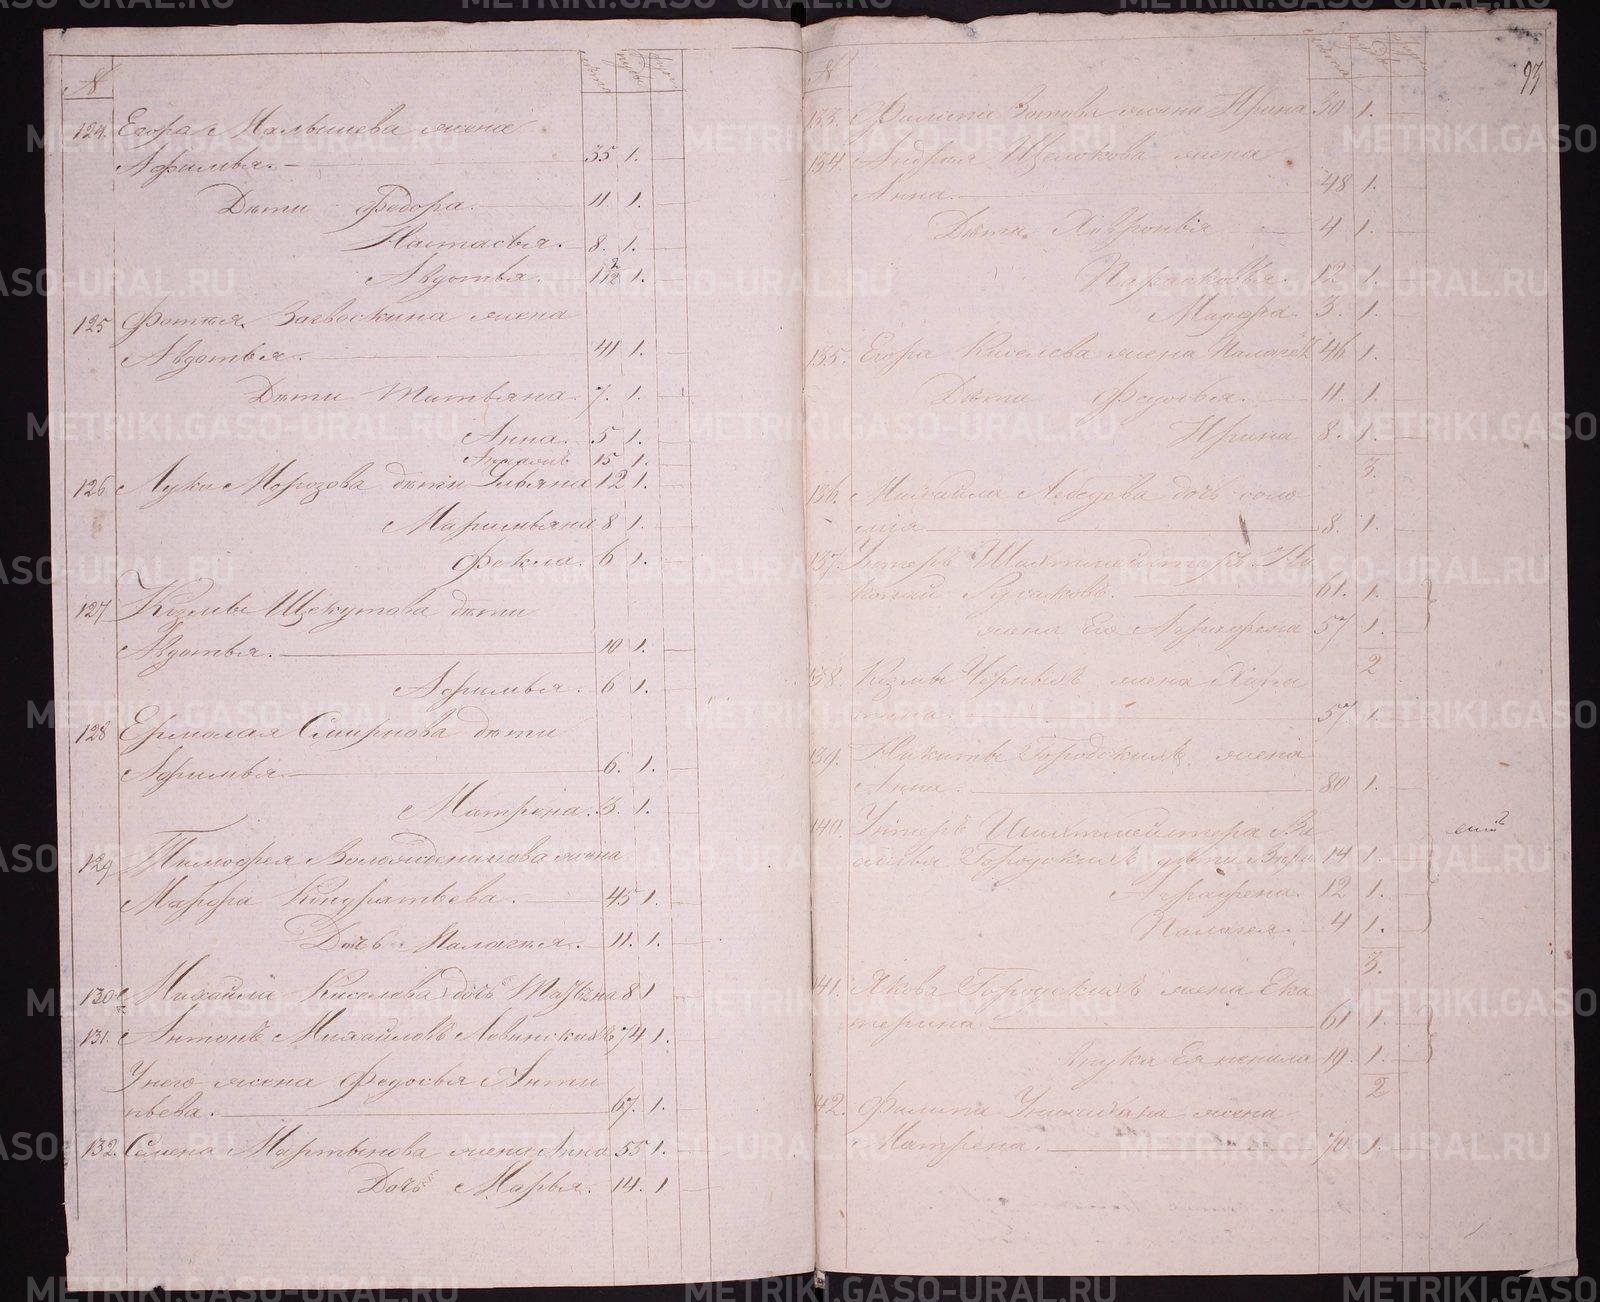 №
124. Егора Малышева жена
Афимья. 35 1.
Дѣти Федора. 11. 1.
Настасья. 8. 1.
Авдотья. 1 2/12 1.
125 Фотѣя жена
Авдотья. 41 1.
Дѣти Татьяна. 7. 1.
Анна. 5 1.
15 1.
126 Луки Морозова дѣти Ульяна 12 1.
Маримьяна 8 1.
Фекла. 6 1.
127 Козмы Щекутова дѣти
Авдотья. 10 1.
Афимья. 6 1.
128 Ермолая Смирнова дѣти
Афимья 6. 1.
Матрена. 3. 1.
129 Тимофея жена
Марфа Кондратьева. 45 1.
Дочь Палагея. 11. 1.
130 Михайла Киселева дочь 8 1
131. Антонъ Михайловъ Левинскихъ 74 1.
У него жена Федосья Анти
пьева. 67. 1.
132. Семена Мартынова жена Анна 55 1.
Дочь Марья. 14. 1
93
№
133. Филипа Зотова жена Ирина 30 1.
134. Андрея Щелокова жена
Анна. 48 1.
Дѣти Хавронья 4 1.
Парасковья. 12 1.
Марфа. 3. 1.
135. Егора Киселева жена Палагея 46 1.
Дѣти Федосья. 11. 1.
Ирина 8. 1.
3.
136. Михайла Лебедева дочь соло
мея 8. 1.
137. Унтеръ Шихтмейстеръ Ни
колай Русаковъ. 61. 1.
жена Его Аграфена 57 1.
2
138. Козмы Черныхъ жена Хари
тина. 57 1.
139. Никиты Городскихъ жена
Анна. 80 1.
140. Унтеръ Шихтмейстера Ва
силья Городскихъ дѣти Вера 14 1.
Аграфена. 12 1.
Палагея. 4 1.
3.
141. Якова Городскихъ жена Ека
терина. 61 1.
внука Ея ненила 19. 1.
2
142. Филипа жена
Матрена. 70 1.
METRIKI.GASO-URAL.RU